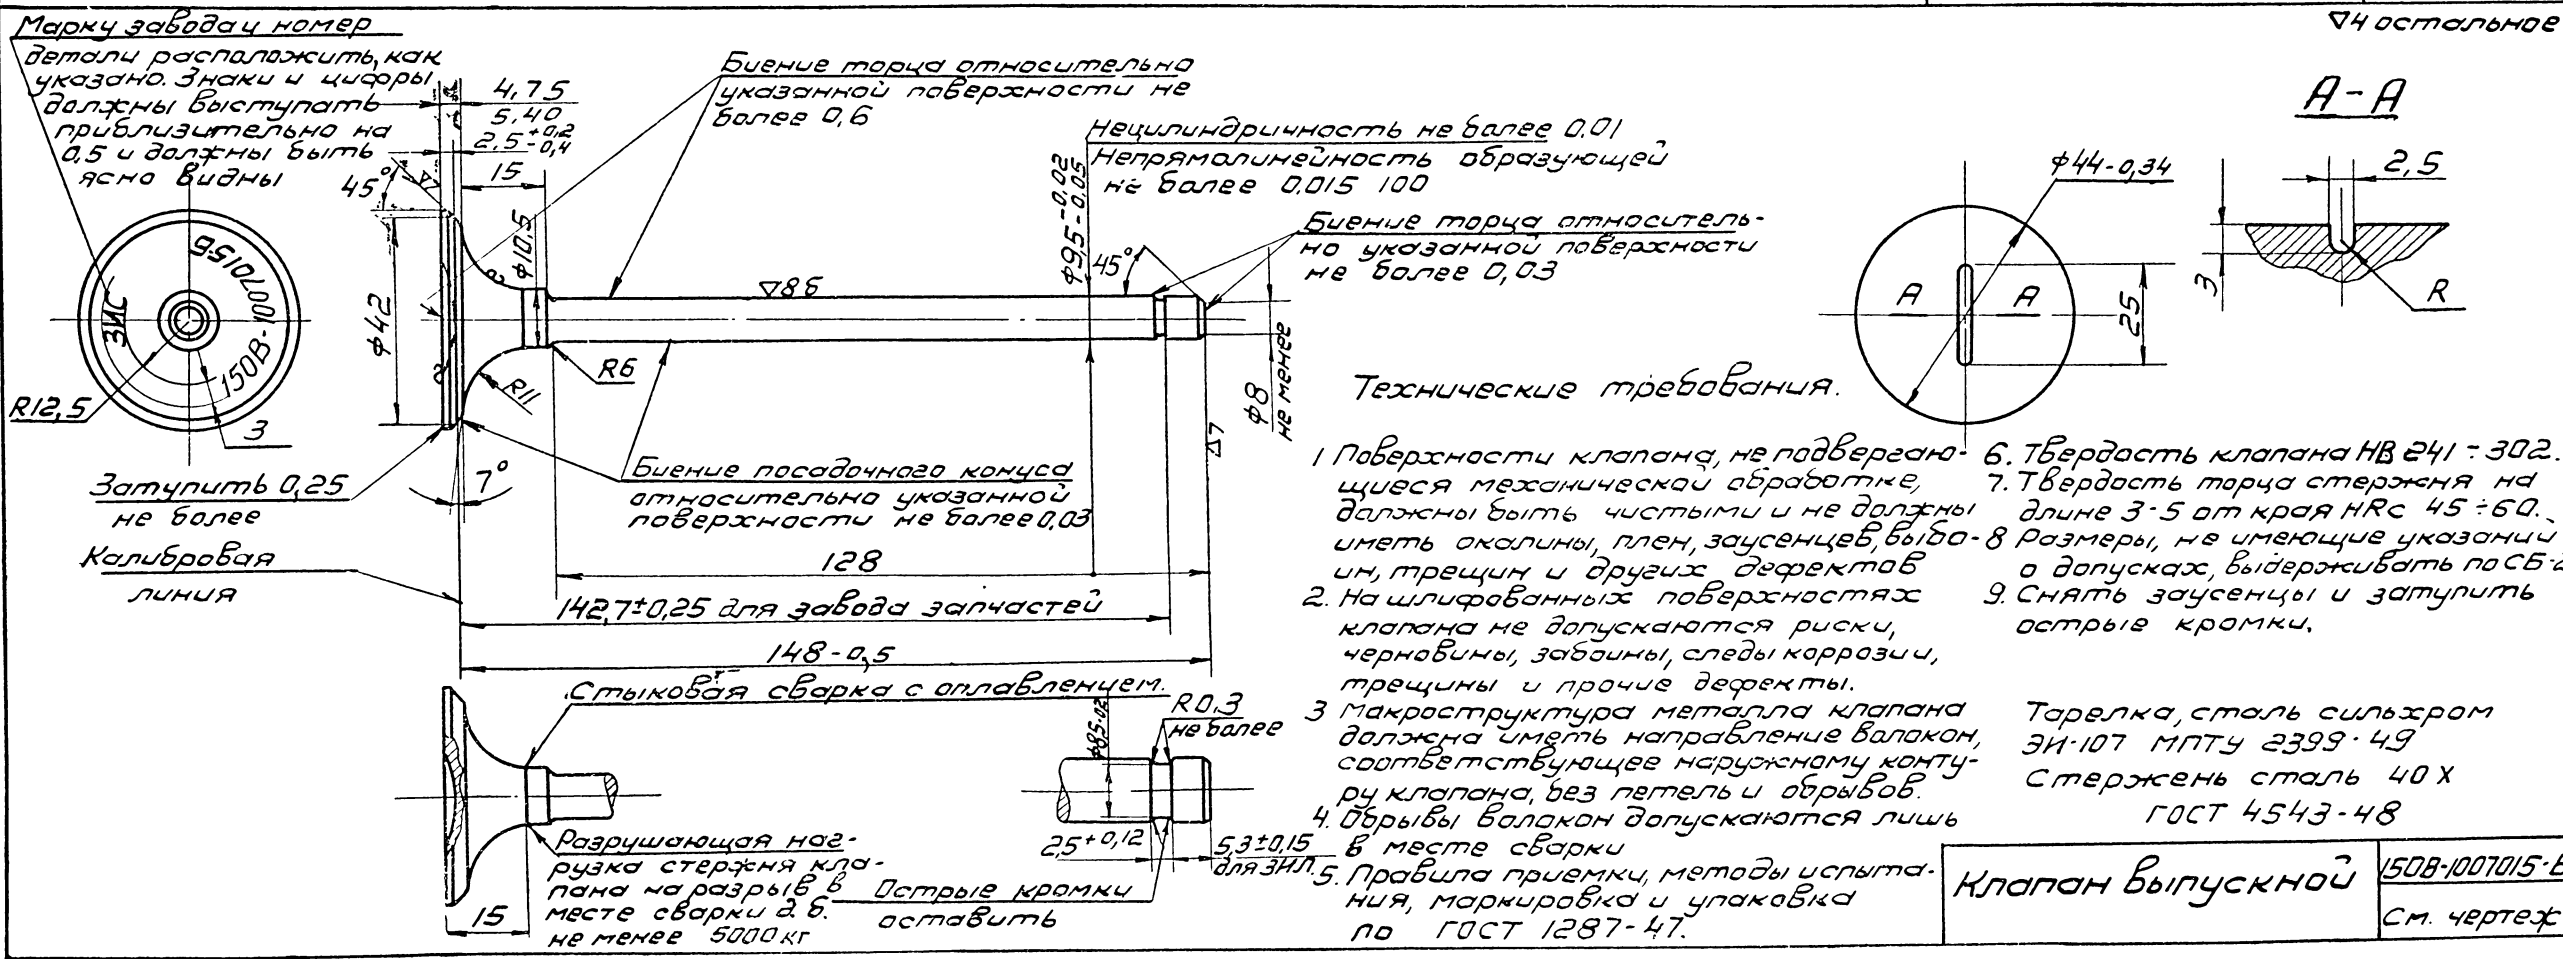 Марку завода и номер
детали расположить, как
указано. Знаки и цифры
должны выступать
приблизительно на
0,5 и должны быть
ясно видны
4,75
5,40
2,5 +0,2 -0,4
15
45°
▽7
Биение торца относительно
указанной поверхности не
более 0,6
Нецилиндричность не более 0,01
Непрямолинейность образующей
не более 0,015 100
Биение торца относитель-
но указанной поверхности
не более 0,03
▽4 остальное
А-А
ф44-0,34
2,5
3
R
А
А
25
ЗИС
150В-1007015Б
R12,5
3
ф42
ф10,5
▽8б
ф9,5 -0,02 -0,05
45°
ф8
не менее
▽7
R6
R11
7°
Затупить 0,25
не более
Калибровая
линия
Биение посадочного конуса
относительно указанной
поверхности не более 0,03
128
142,7±0,25 для завода запчастей
148-0,5
Стыковая сварка с оплавлением.
15
Разрушающая наг-
рузка стержня кла-
пана на разрыв в
месте сварки д.б.
не менее 5000кг
ф8,5-0,2
R0,3
не более
2,5+0,12
5,3±0,15
для ЗИЛ.
Острые кромки
оставить
Технические требования.
1 Поверхности клапана, не подвергаю-
щиеся механической обработке,
должны быть чистыми и не должны
иметь окалины, плен, заусенцев, выбо-
ин, трещин и других дефектов
2. На шлифованных поверхностях
клапана не допускаются риски,
черновины, забоины, следы коррозии,
трещины и прочие дефекты.
3 Макроструктура металла клапана
должна иметь направление волокон,
соответствующее наружному конту-
ру клапана, без петель и обрывов.
4. Обрывы волокон допускаются лишь
в месте сварки
5. Правила приемки, методы испыта-
ния, маркировка и упаковка
по ГОСТ 1287-47.
6. Твердость клапана НВ 241÷302.
7. Твердость торца стержня на
длине 3-5 от края HRc 45÷60.
8 Размеры, не имеющие указаний
о допусках, выдерживать по СБ-2
9. Снять заусенцы и затупить
острые кромки.
Тарелка, сталь сильхром
ЭИ-107 МПТУ 2399-49
Стержень сталь 40Х
ГОСТ 4543-48
Клапан выпускной
150В-1007015-Б
См. чертеж